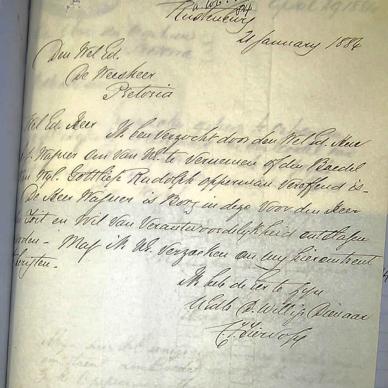 Rustenburg
21 January 1884
Den Wel Ed.
De Weesheer
Pretoria
Wel Ed Heer
Ik ben verzocht door den Wel Ed. Heer
Wagner om van U te vernemen of den Boedel
van Wyl. Gottlieb Rudolph Opperman vereffend is -
De Heer Wagner is Borg in deze voor den Heer
en Wil van Verantwoordelykheid onthafen
worden - Mag ik U. verzoeken om my hieromtrent
Ik heb de eer te zyn
UEdls D. Willige Dienaar